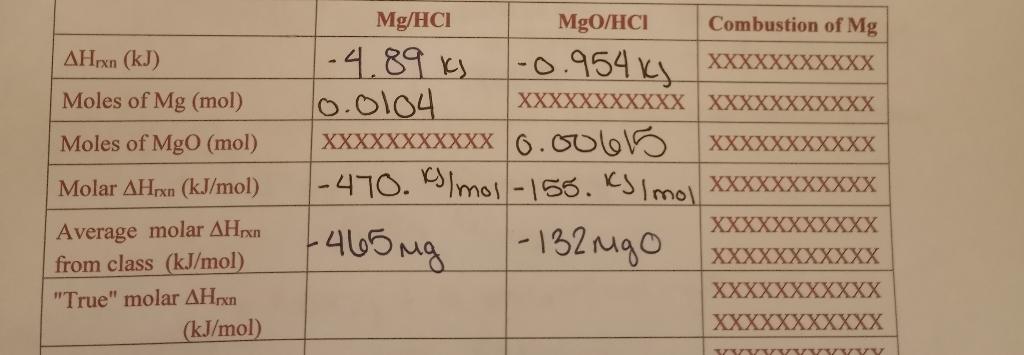 Mg/HCl MgO/HCl Combustion of Mg
ΔHrxn (kJ) -4.89 KJ -0.954 KJ XXXXXXXXXXX
Moles of Mg (mol) 0.0104 XXXXXXXXXXX XXXXXXXXXXX
Moles of MgO (mol) XXXXXXXXXXX 0.00615 XXXXXXXXXXX
Molar ΔHrxn (kJ/mol) -470. KJ/mol -155. KJ/mol XXXXXXXXXXX
Average molar ΔHrxn -465 Mg -132 MgO XXXXXXXXXXX
from class (kJ/mol) XXXXXXXXXXX
"True" molar ΔHrxn XXXXXXXXXXX
(kJ/mol) XXXXXXXXXXX